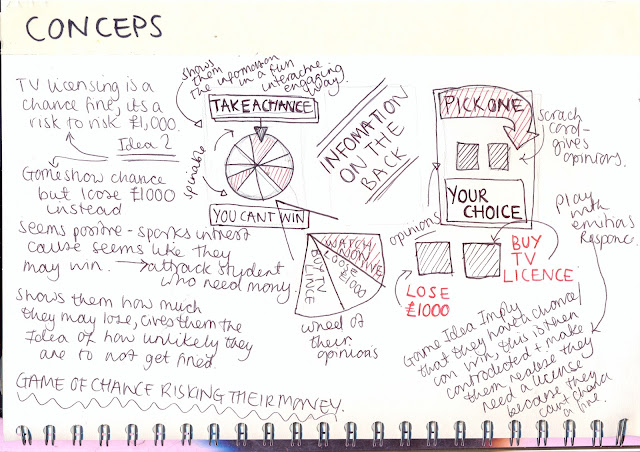 CONCEPS
TV licensing is a
chance fine, its a
risk to risk £1,000.
Idea 2
Gameshow chance
but loose £1000
instead
seems positive - sparks intrest
cause seems like they
may win. → attrack student
who need mony.
Shows them how much
they may lose, Gives them the
Idea of how unlikely they
are to not get fined.
GAME OF CHANCE RISKING THEIR MONEY.
shows
them
the infomation
in a fun
interactive
engaging
way.
TAKE A CHANCE
spinable
YOU CANT WIN
INFOMATION
ON THE
BACK
WATCH
LOOSE
£1000
BUY TV
wheel of
their
opinions
PICK ONE
YOUR
CHOICE
scrach
card-
gives
opinions.
opinions
LOSE
£1000
BUY
TV
LICENCE
play
with
Game Idea Imply
that they hava chance/
can win, this is then
+ make
them realise they
need a license
because they
cant
a fine.